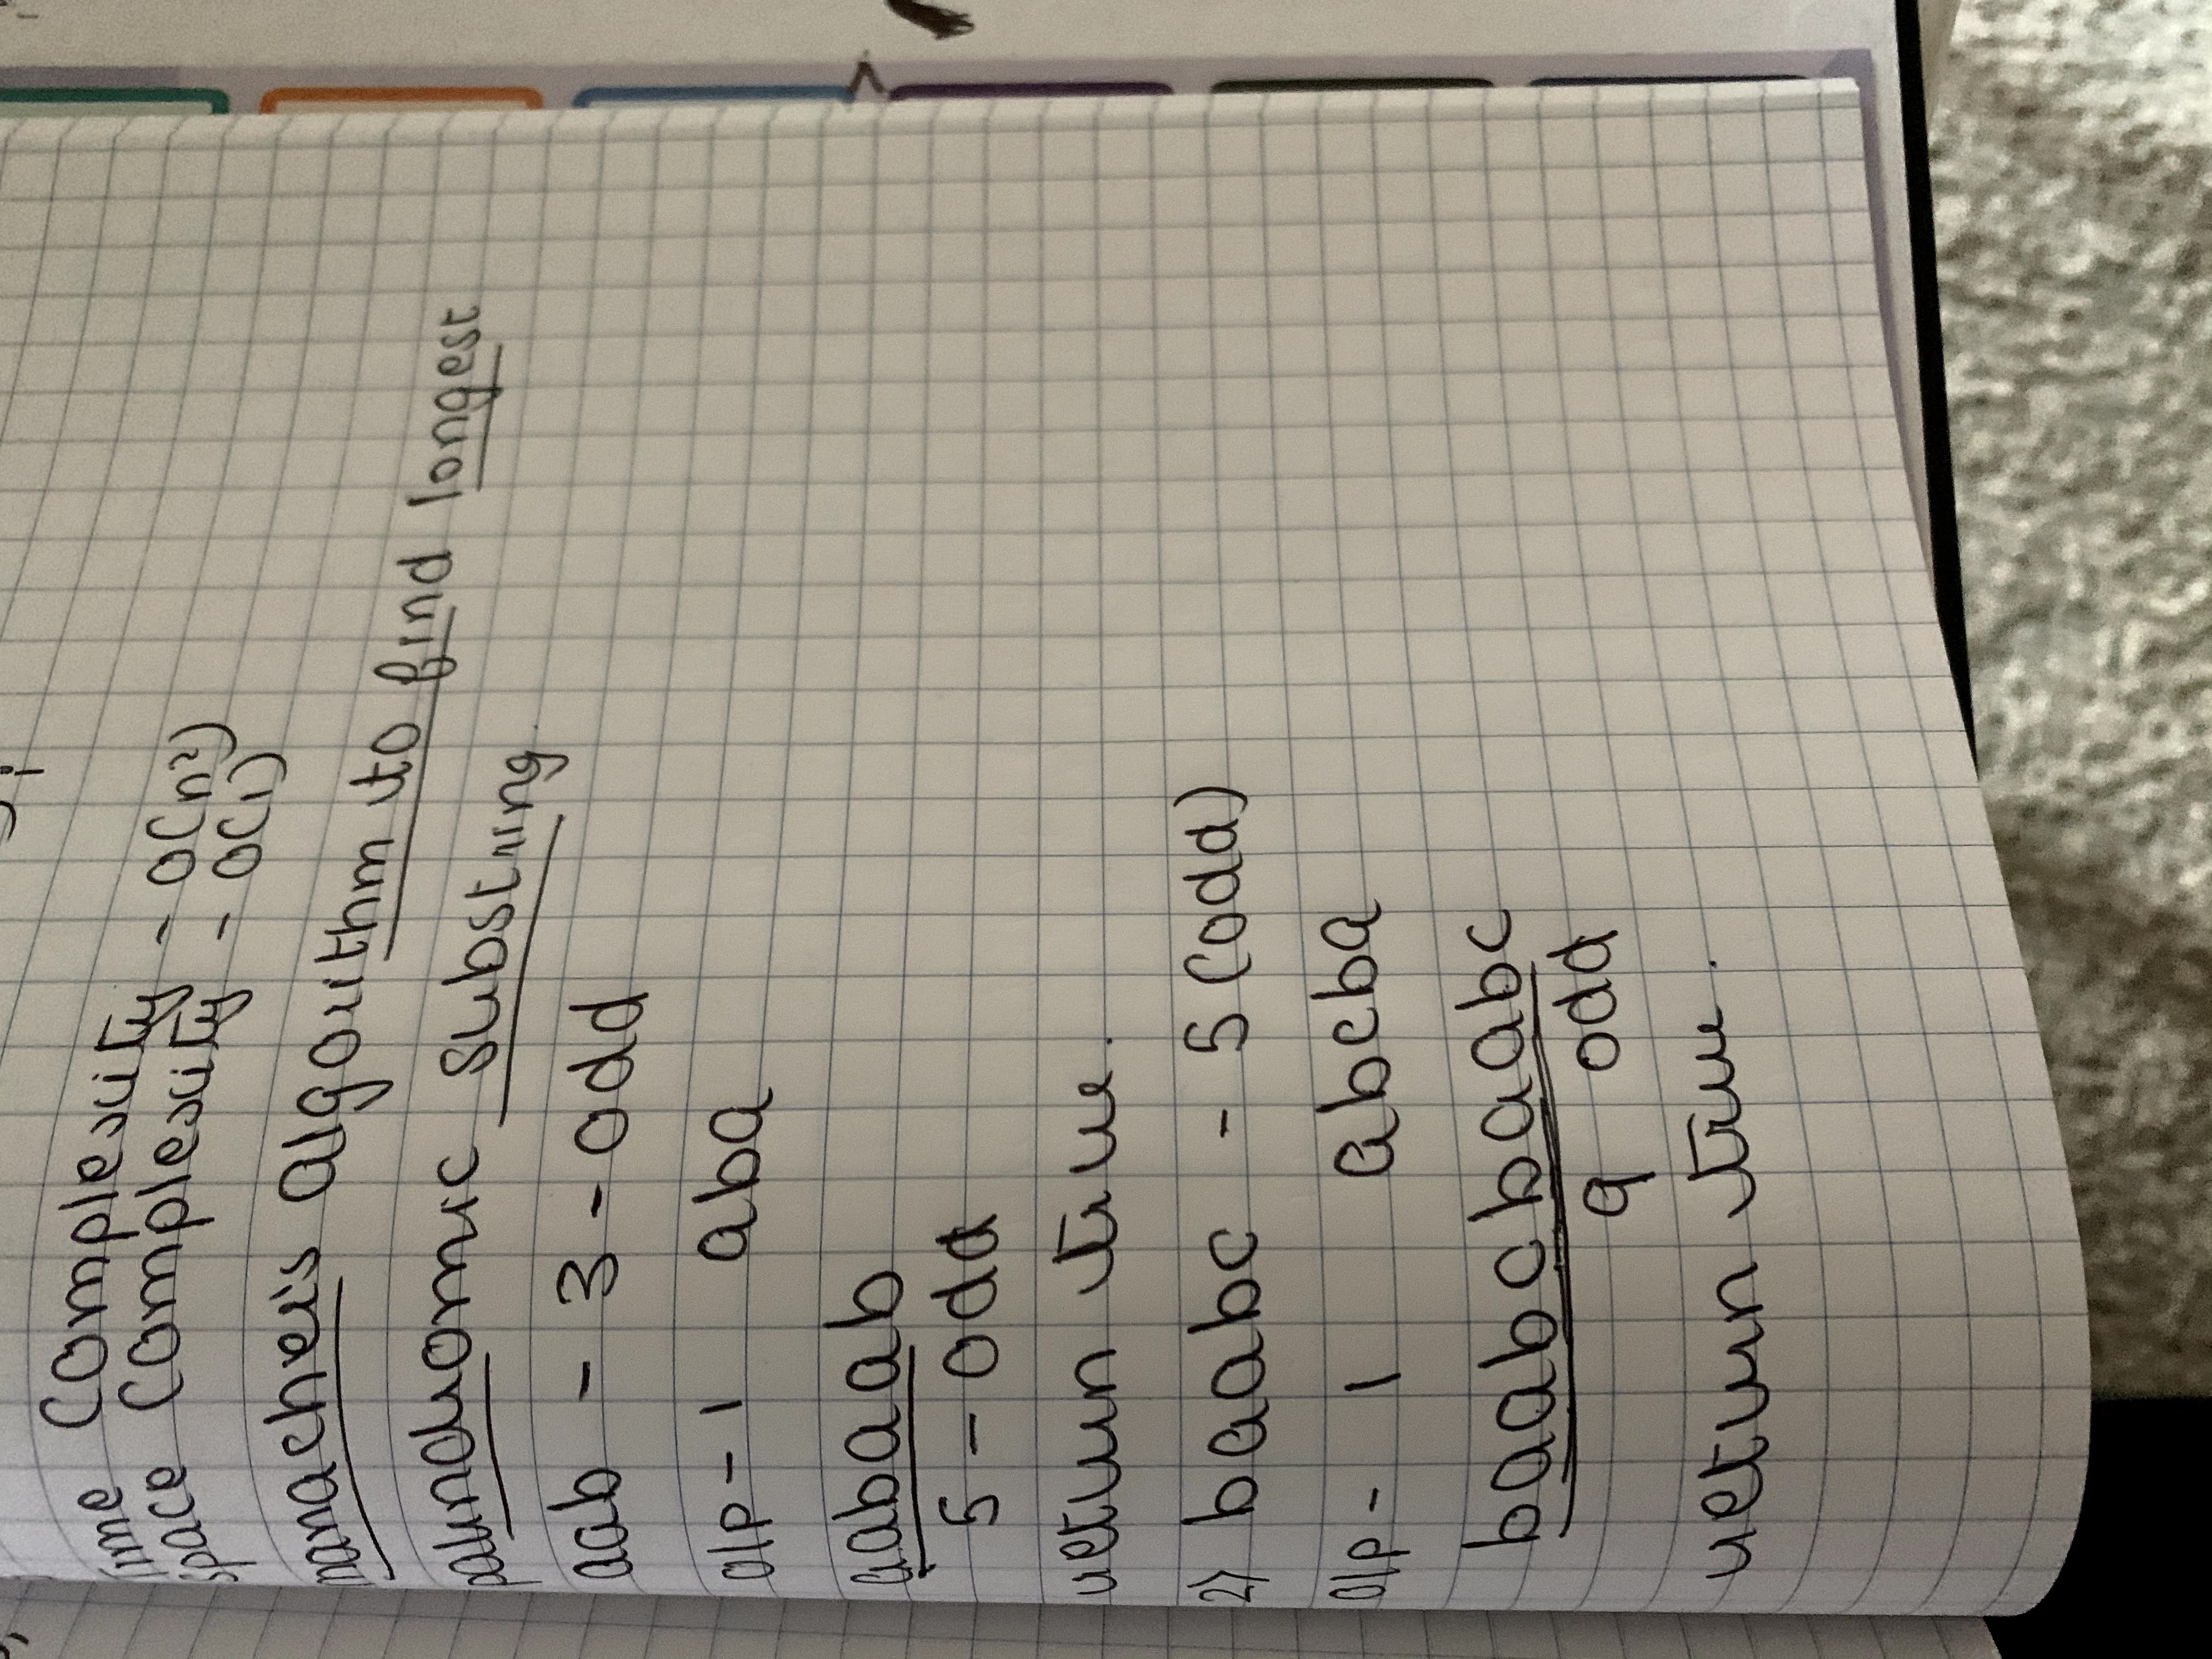 Time Complexity - O(n²)
Space Complexity - O(1)
manacher's Algorithm to find longest
palindromic substring
aab - 3 - odd
o/p - 1 aba
aabaab
5 - odd
return true.
2) baabc - 5 (odd)
o/p - 1 abcba
baabcbaabc
9 odd
return true.